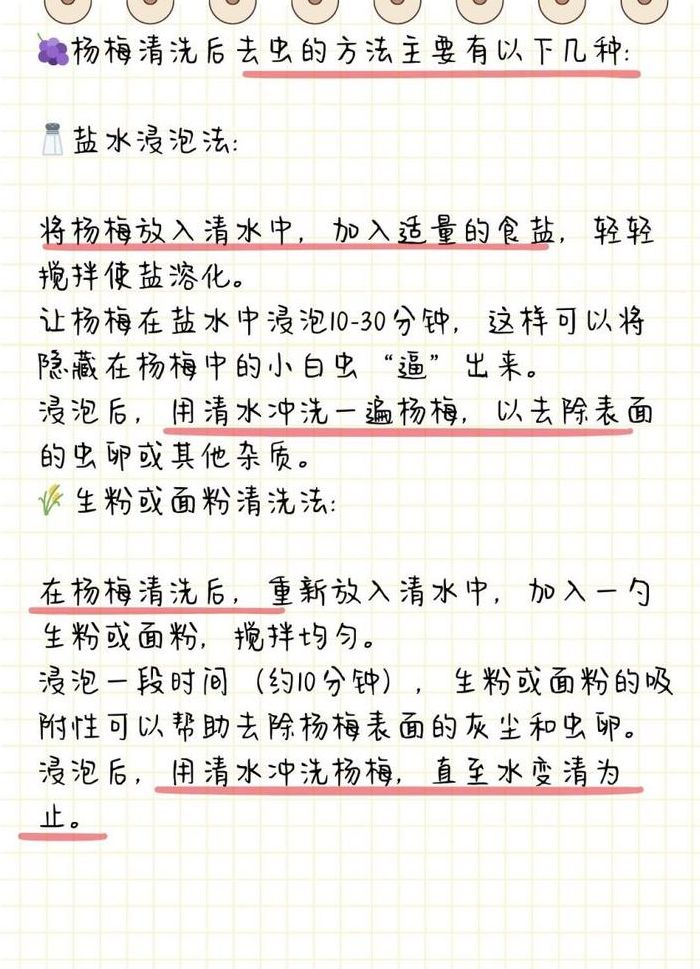 杨梅清洗后去虫的方法主要有以下几种:
盐水浸泡法:
将杨梅放入清水中，加入适量的食盐，轻轻
搅拌使盐溶化。
让杨梅在盐水中浸泡10-30分钟，这样可以将
隐藏在杨梅中的小白虫“逼”出来。
浸泡后，用清水冲洗一遍杨梅，以去除表面
的虫卵或其他杂质。
生粉或面粉清洗法:
在杨梅清洗后，重新放入清水中，加入一勺
生粉或面粉，搅拌均匀。
浸泡一段时间（约10分钟），生粉或面粉的吸
附性可以帮助去除杨梅表面的灰尘和虫卵。
浸泡后，用清水冲洗杨梅，直至水变清为
止。